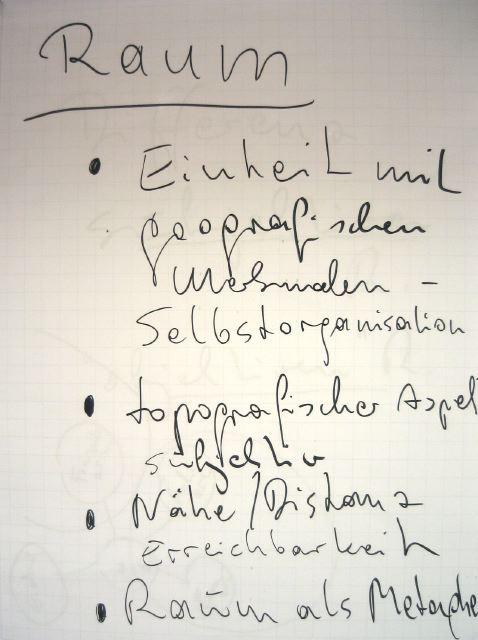 Raum
• Einheit mit
geografischen
Merkmalen -
Selbstorganisation
• topografischer Aspek
subjektiv
• Nähe/Distanz
Erreichbarkeit
• Raum als Metaphe